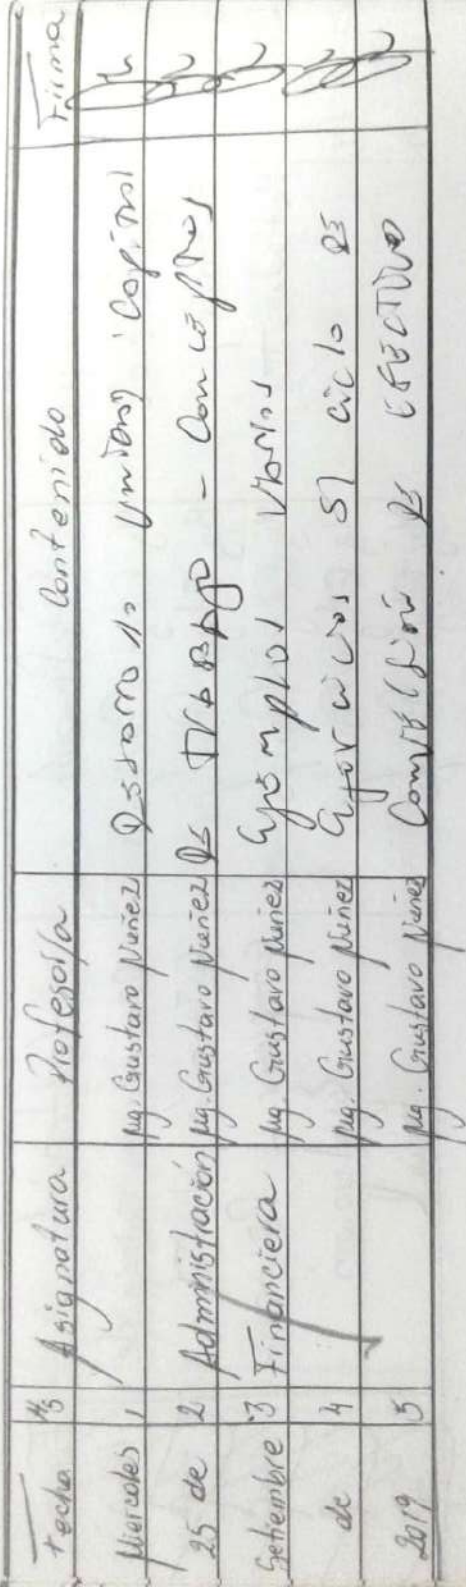 Fecha Hs Asignatura Profesor/a Contenido Firma
Miercoles 1 Mg. Gustavo Nuñez Desarrollo Unidad Capital
25 de 2 Administración Mg. Gustavo Nuñez de Trabajo - Conceptos
Setiembre 3 Financiera Mg. Gustavo Nuñez Ejemplos Varios
de 4 Mg. Gustavo Nuñez Ejercicios El ciclo de
2019 5 Mg. Gustavo Nuñez Conversión de Efectivo